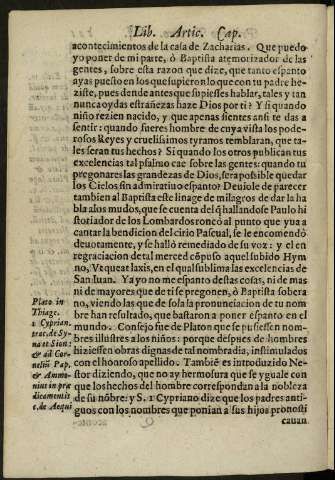 Lib. Artic. Cap.
acontecimientos de la casa de Zacharias. Que puedo
yo poner de mi parte, ò Baptista atemorizador de las
gentes, sobre esta razon que dize, que tanto espanto
ayas puesto en los que supieron lo que con tu padre he-
ziste, pues dende antes que supiesses hablar, tales y tan
nunca oydas estrañezas haze Dios por ti? Y si quando
niño rezien nacido, y que apenas sientes ansi te das a
sentir: quando fueres hombre de cuya vista los pode-
rosos Reyes y cruelissimos tyramos temblaran, que ta-
les seran tus hechos? Si quando los otros publican tus
excelencias tal psalmo cae sobre las gentes: quando tu
pregonares las grandezas de Dios, sera possible quedar
los Cielos sin admirativo espanto? Deuiole de parecer
tambien al Baptista este linage de milagros de dar la ha
bla a los mudos, que se cuenta del q̃ hallandose Paulo hi
storiador de los Lombardos roncó al punto que yua a
cantar la bendicion del cirio Pascual, se le encomendó
deuotamente, y se halló remediado de su voz: y el en
regraciacion de tal merced cõpuso aquel subido Hym
no, Vt queat laxis, en el qual sublima las excelencias de
San Iuan. Ya yo no me espanto destas cosas, ni de mas
ni de mayores que de ti se pregonen, ò Baptista sobera
no, viendo las que de sola la pronunciacion de tu nom
bre han resultado, que bastaron a poner espanto en el
mundo. Consejo fue de Platon que se pusiessen nom-
bres illustres a los niños: porque despues de hombres
hiziessen obras dignas de tal nombradia, instimulados
con el honroso apellido. Tambiẽ es introduzido Ne-
stor diziendo, que no ay hermosura que se yguale con
que los hechos del hombre correspondan a la nobleza
de su nõbre: y S. 1 Cypriano dize que los padres anti-
guos con los nombres que ponian a sus hijos pronosti
cauan
Plato in
Thiage.
1 Cyprian.
trac. de Sy-
na et Sion:
& ad Cor-
neliũ Pap.
& Ammo-
nius in præ
dicamentis
c. de Aequi